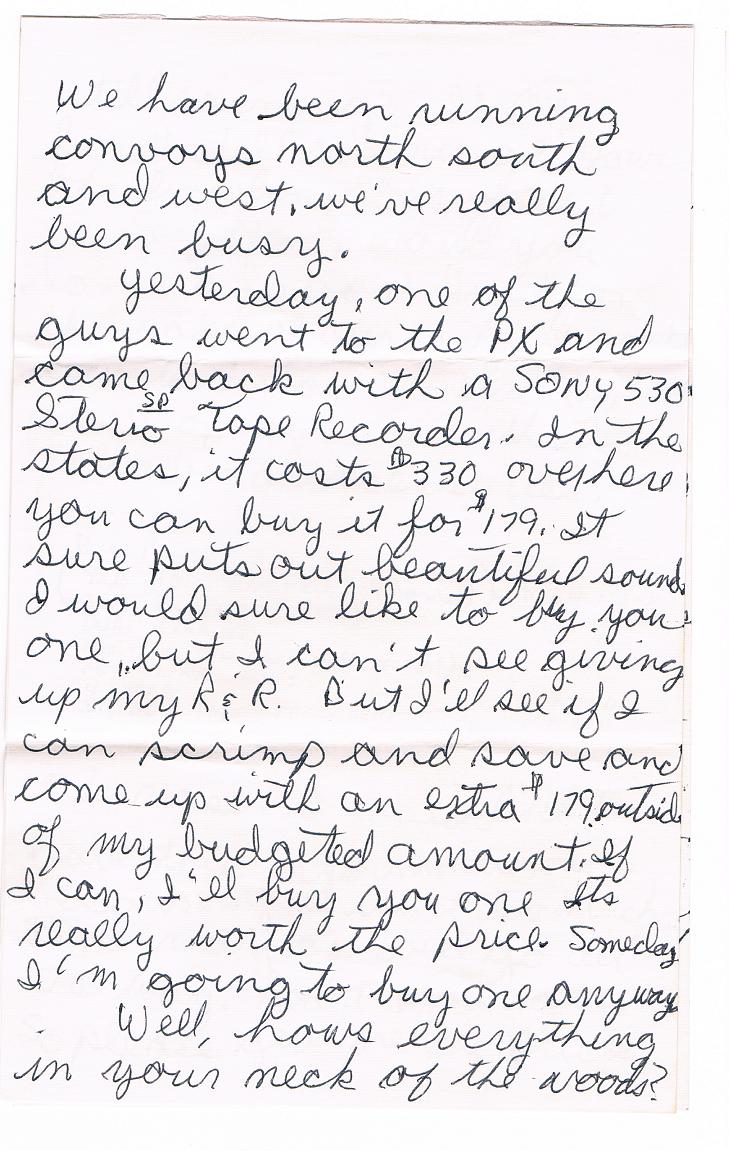 We have been running
convoys north south
and west, we've really
been busy.
Yesterday, one of the
guys went to the PX and
came back with a SONY 530
sp
Sterio Tape Recorder. In the
states, it costs $330 overhere
you can buy it for $179. It
sure puts out beautiful sound.
I would sure like to buy you
one, but I can't see giving
up my R & R. But I'll see if I
can scrimp and save and
come up with an extra $179 outside
of my budgeted amount. If
I can, I'll buy you one Its
really worth the price. Someday
I'm going to buy one anyway
Well, hows everything
in your neck of the woods?